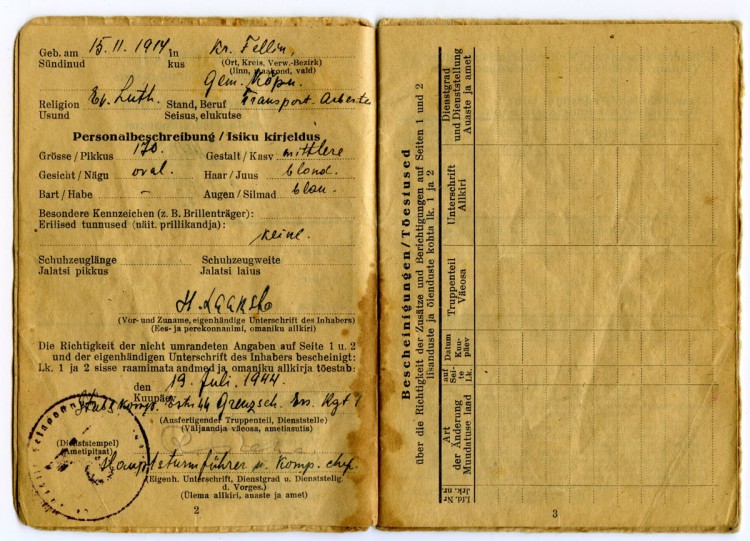 Geb. am 15.11.1914 in Kr. Fellin,
Sündinud kus (Ort, Kreis, Verw.-Bezirk)
(linn, maakond, vald)
Gem. Köpu.
Religion Ev. Luth. Stand, Beruf Transport-Arbeiter
Usund Seisus, elukutse
Personalbeschreibung / Isiku kirjeldus
Grösse / Pikkus 170. Gestalt / Kasv mittlere
Gesicht / Nägu oval. Haar / Juus blond.
Bart / Habe – Augen / Silmad blau.
Besondere Kennzeichen (z. B. Brillenträger):
Erilised tunnused (näit. prillikandja):
keine.
Schuhzeuglänge Schuhzeugweite
Jalatsi pikkus Jalatsi laius
H. Laaksho
(Vor- und Zuname, eigenhändige Unterschrift des Inhabers)
(Ees- ja perekonnanimi, omaniku allkiri)
Die Richtigkeit der nicht umrandeten Angaben auf Seite 1 u. 2
und der eigenhändigen Unterschrift des Inhabers bescheinigt:
Lk. 1 ja 2 sisse raamimata andmed ja omaniku allkirja tõestab:
den 19. Juli. 1944.
Kuupäev
Stabskomp. Estn. SS Grenzsch. Ers. Rgt 1
(Ausfertigender Truppenteil, Dienststelle)
(Väljaandja väeosa, ametiasutis)
(Dienststempel)
(Ametipitsat)
Hauptsturmführer u. Komp. chef.
(Eigenh. Unterschrift, Dienstgrad u. Dienststellg.
d. Vorges.)
(Ülema allkiri, auaste ja amet)
2
Bescheinigungen / Tõestused
über die Richtigkeit der Zusätze und Berichtigungen auf Seiten 1 und 2
lisanduste ja õienduste kohta lk. 1 ja 2
Lfd. Nr
Jrk. nr.
Art
der Änderung
Muudatuse laad
auf
Sei-
te
Lk.
Datum
Kuu-
päev
Truppenteil
Väeosa
Unterschrift
Allkiri
Dienstgrad
und Dienststellung
Auaste ja amet
3